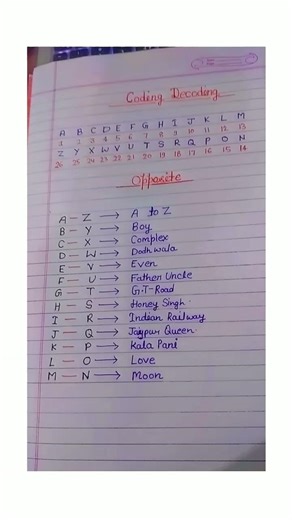 Coding Decoding
A B C D E F G H I J K L M
1 2 3 4 5 6 7 8 9 10 11 12 13
Z Y X W V U T S R Q P O N
26 25 24 23 22 21 20 19 18 17 16 15 14
Opposite
A – Z → A to Z
B – Y → Boy
C – X → Complex
D – W → Dodh wala
E – V → Even
F – U → Father Uncle
G – T → G.T-Road
H – S → Honey Singh
I – R → Indian Railway
J – Q → Jaypur Queen
K – P → Kala Pani
L – O → Love
M – N → Moon